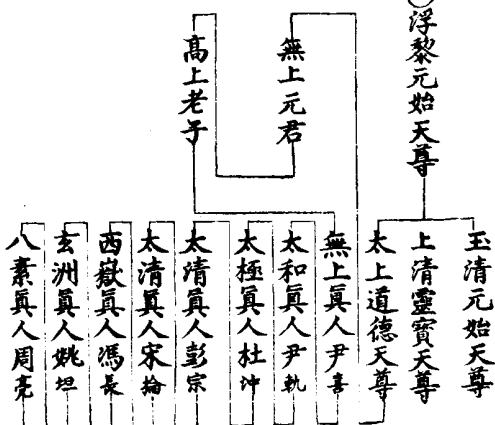 浮黎元始天尊
無上元君
高上老子
玉清元始天尊
上清靈寶天尊
太上道德天尊
無上眞人尹喜
太和眞人尹軌
太極眞人杜冲
太清眞人彭宗
太清眞人宋掄
西嶽眞人馮長
玄洲眞人姚坦
八素眞人周亮